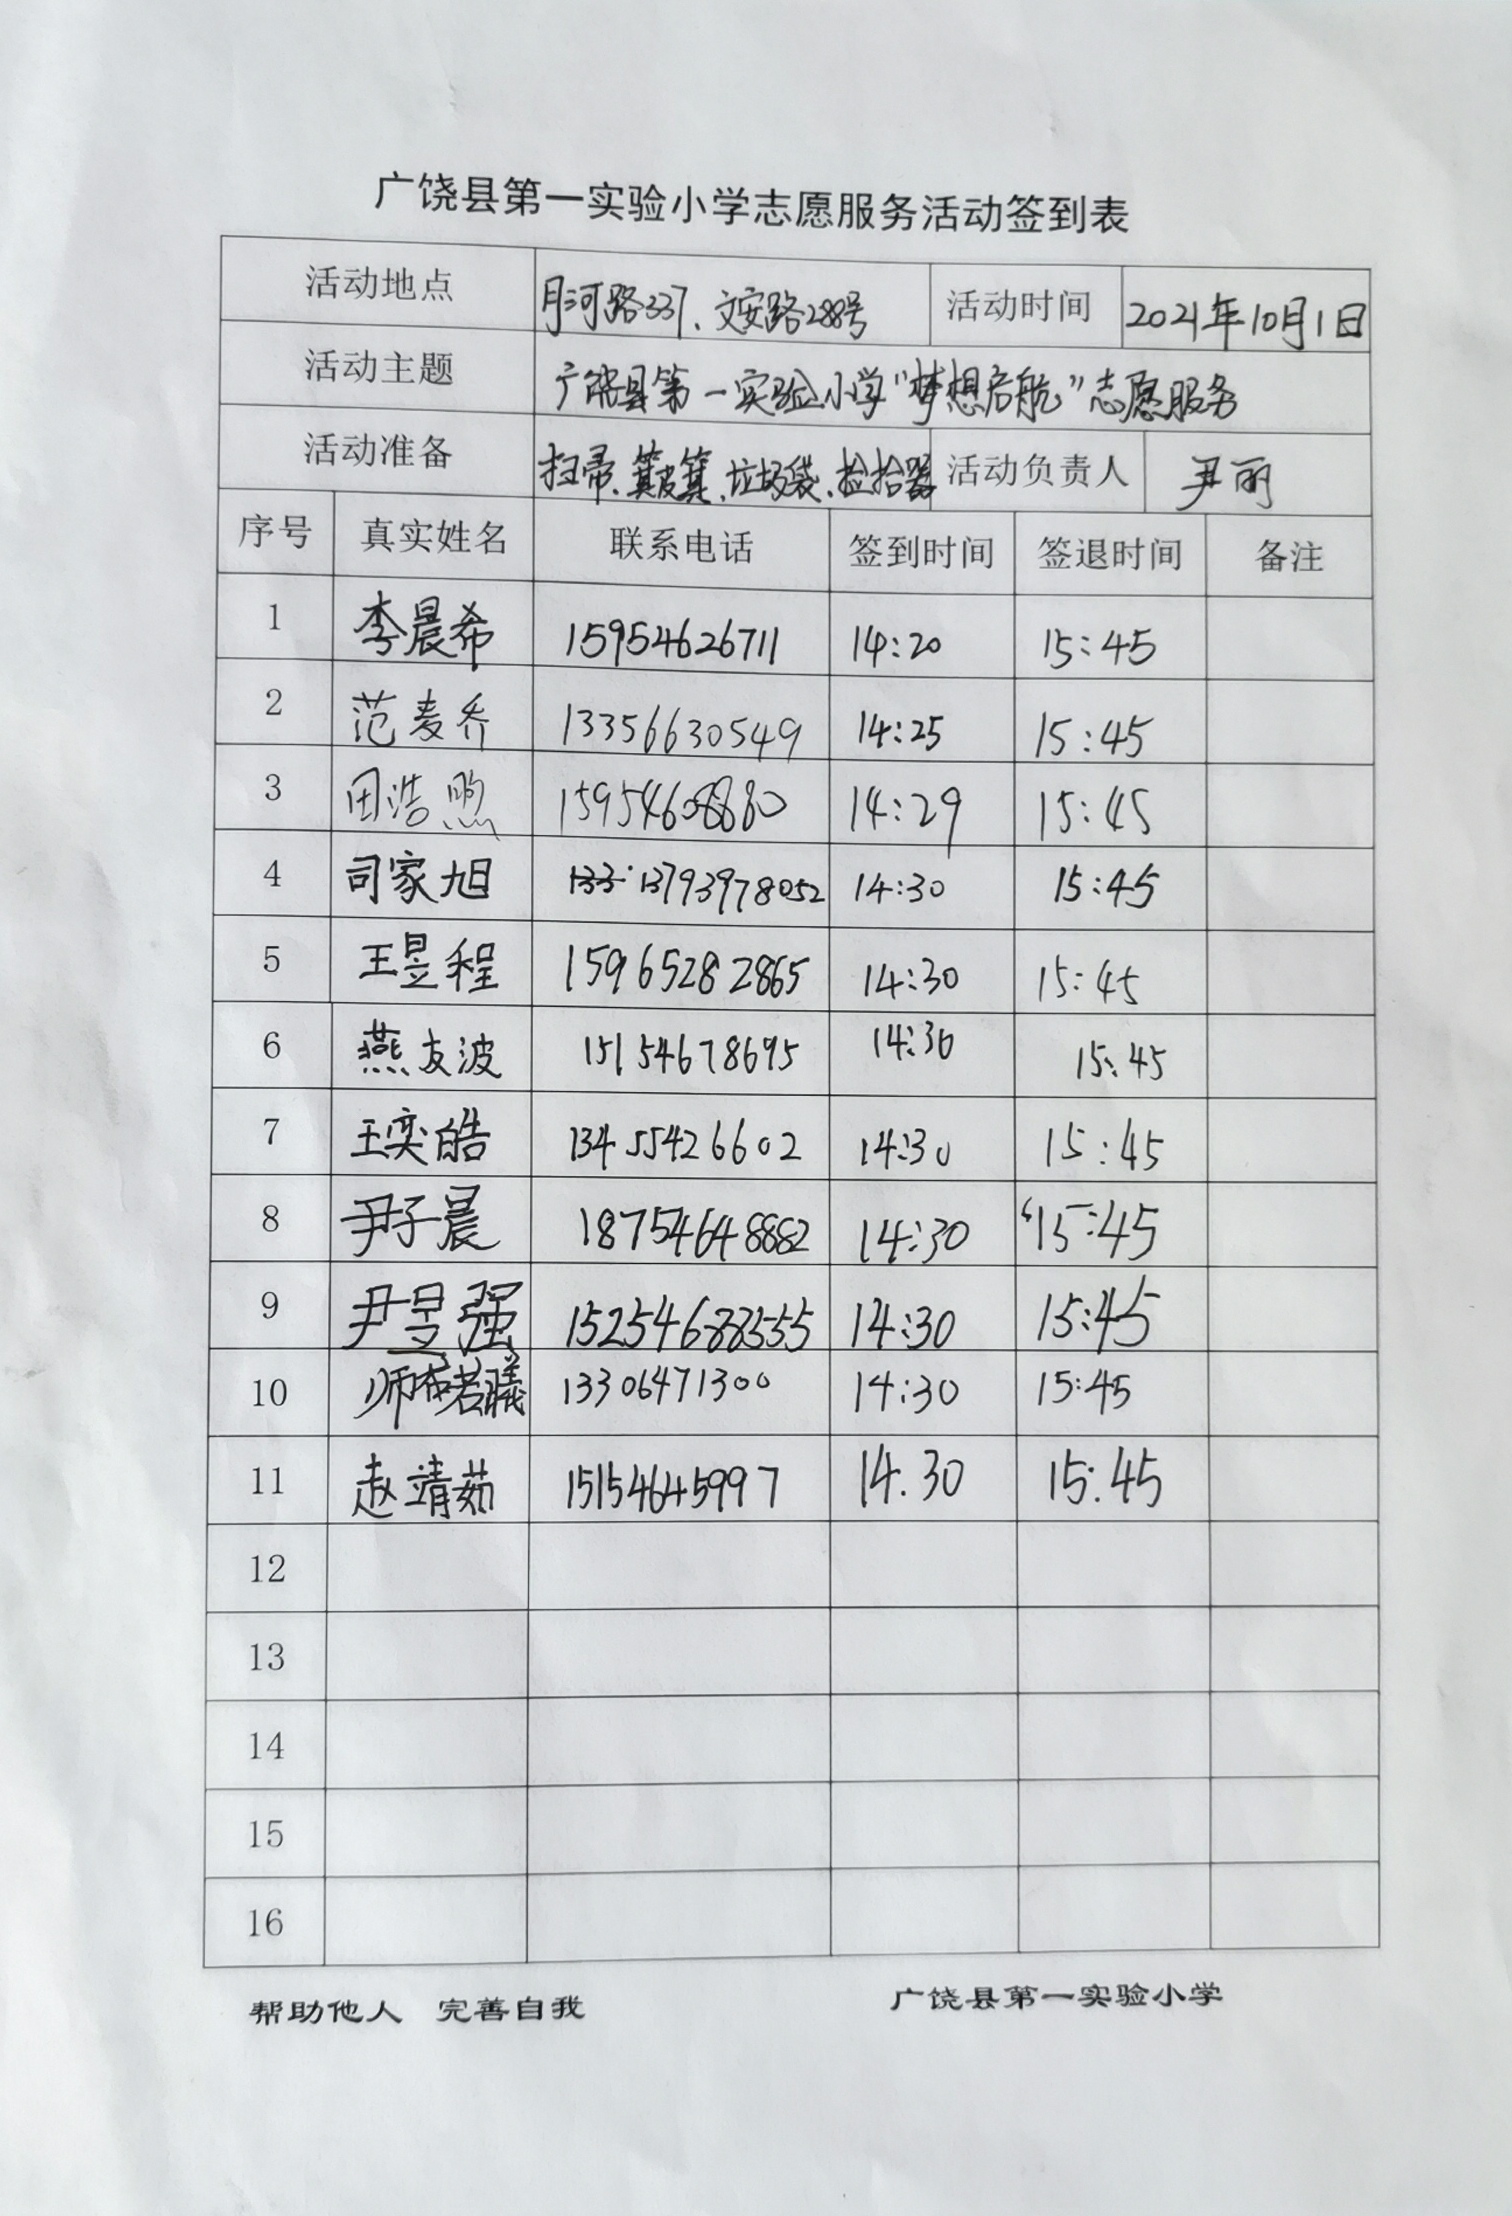 广饶县第一实验小学志愿服务活动签到表
活动地点 月河路337、文安路288号 活动时间 2021年10月1日
活动主题 广饶县第一实验小学“梦想启航”志愿服务
活动准备 扫帚、簸箕、垃圾袋、捡拾器 活动负责人 尹丽
序号 真实姓名 联系电话 签到时间 签退时间 备注
1 李晨希 15954626711 14:20 15:45
2 范麦乔 13356630549 14:25 15:45
3 田浩煦 14:29 15:45
4 司家旭 13793978052 14:30 15:45
5 王昱程 15965282865 14:30 15:45
6 燕友波 15154678695 14:30 15:45
7 王奕皓 13455426602 14:30 15:45
8 尹子晨 18754648882 14:30 15:45
9 尹昱强 15254688555 14:30 15:45
10 师若曦 13306471300 14:30 15:45
11 赵靖茹 15154645997 14.30 15:45
12
13
14
15
16
帮助他人 完善自我 广饶县第一实验小学